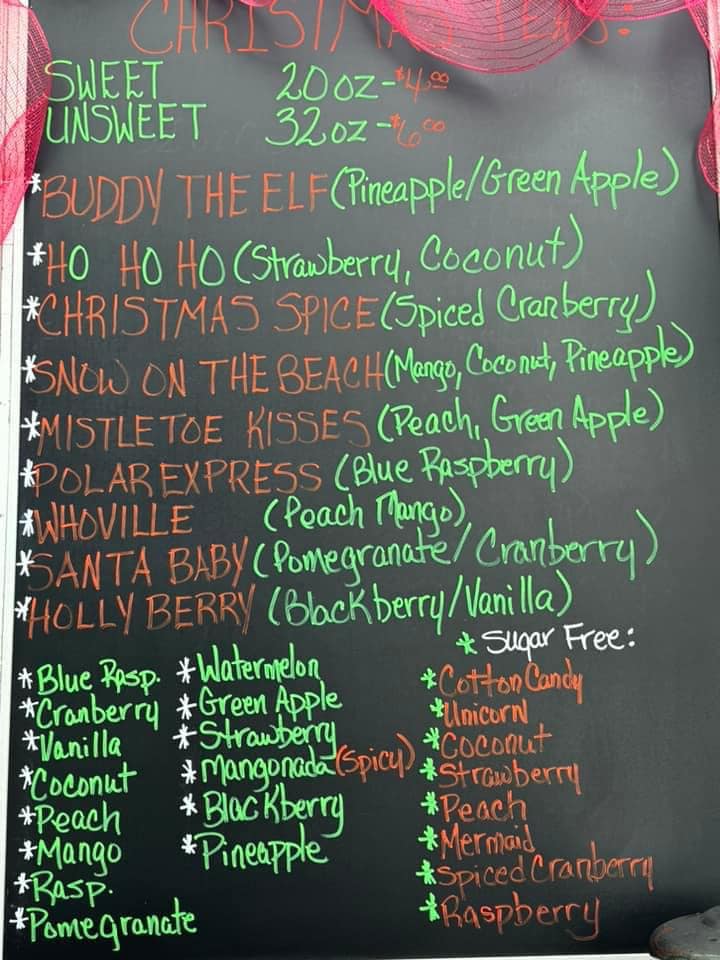 CHRISTMAS TEAS:
SWEET 20oz-$4.00
UNSWEET 32oz-$6.00
*BUDDY THE ELF (Pineapple/Green Apple)
*HO HO HO (Strawberry, Coconut)
*CHRISTMAS SPICE (Spiced Cranberry)
*SNOW ON THE BEACH (Mango, Coconut, Pineapple)
*MISTLETOE KISSES (Peach, Green Apple)
*POLAR EXPRESS (Blue Raspberry)
*WHOVILLE (Peach Mango)
*SANTA BABY (Pomegranate/Cranberry)
*HOLLY BERRY (Blackberry/Vanilla)
*Blue Rasp.
*Cranberry
*Vanilla
*Coconut
*Peach
*Mango
*Rasp.
*Pomegranate
*Watermelon
*Green Apple
*Strawberry
*Mangonada (Spicy)
*Blackberry
*Pineapple
*Sugar Free:
*Cotton Candy
*Unicorn
*Coconut
*Strawberry
*Peach
*Mermaid
*Spiced Cranberry
*Raspberry